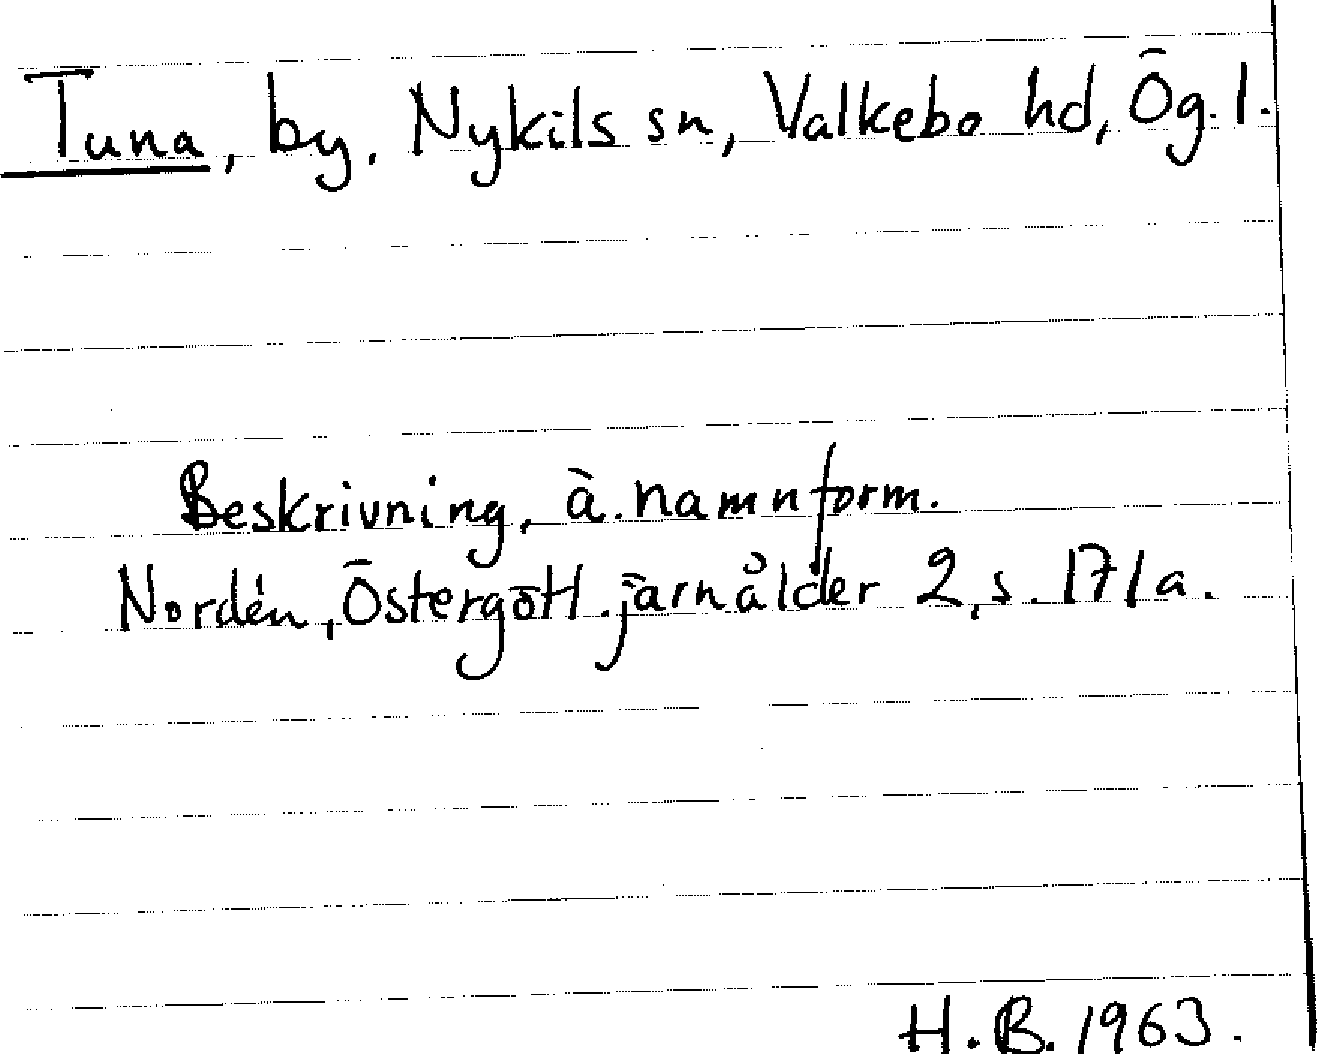 Tuna, by. Nykils sn, Valkebo hd, Ög. l.
Beskrivning, ä. namnform.
Nordén, Östergötl. järnålder 2, s. 171a.
H. B. 1963.